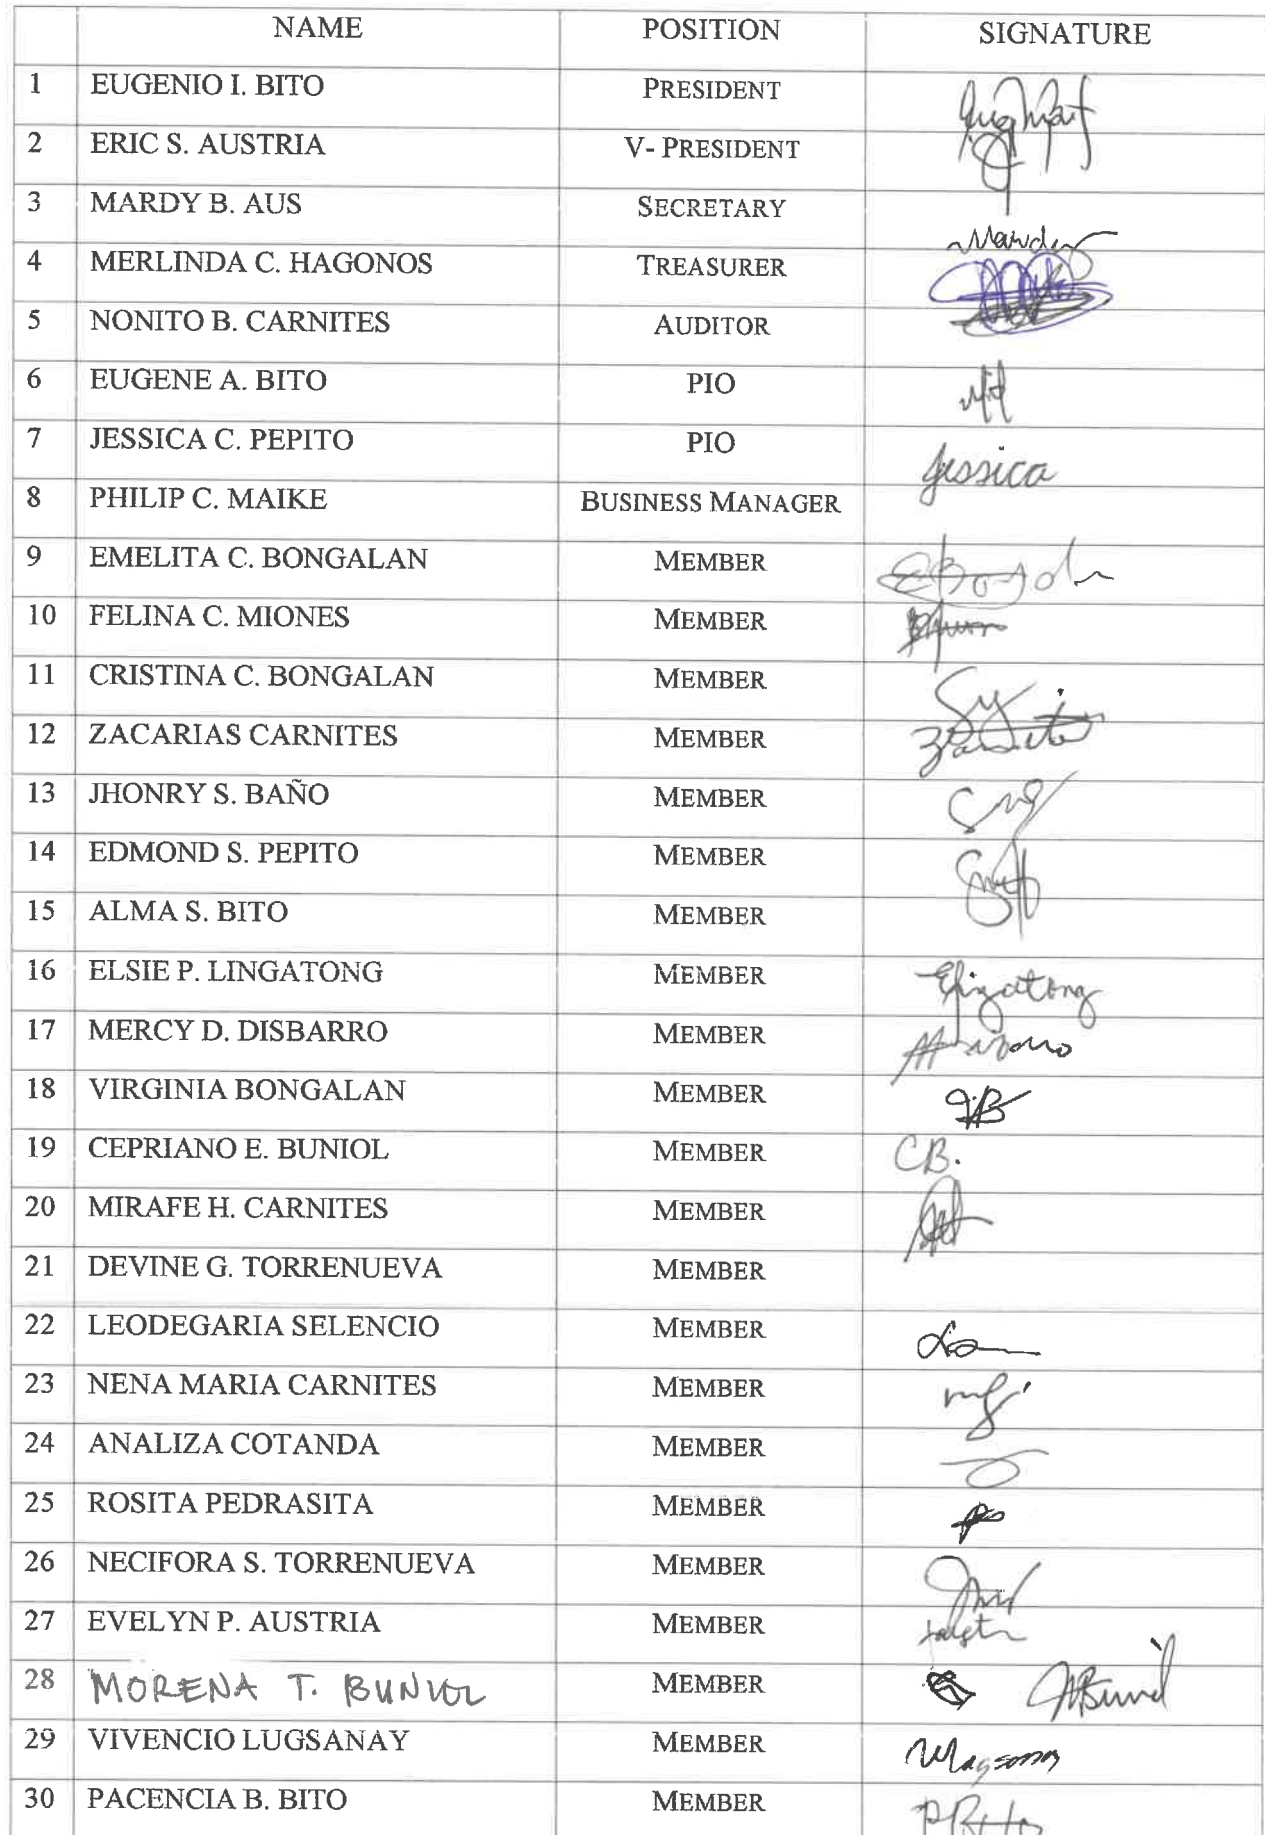 NAME POSITION SIGNATURE
1 EUGENIO I. BITO PRESIDENT
2 ERIC S. AUSTRIA V- PRESIDENT
3 MARDY B. AUS SECRETARY
4 MERLINDA C. HAGONOS TREASURER
5 NONITO B. CARNITES AUDITOR
6 EUGENE A. BITO PIO
7 JESSICA C. PEPITO PIO Jessica
8 PHILIP C. MAIKE BUSINESS MANAGER
9 EMELITA C. BONGALAN MEMBER
10 FELINA C. MIONES MEMBER
11 CRISTINA C. BONGALAN MEMBER
12 ZACARIAS CARNITES MEMBER
13 JHONRY S. BAÑO MEMBER
14 EDMOND S. PEPITO MEMBER
15 ALMA S. BITO MEMBER
16 ELSIE P. LINGATONG MEMBER
17 MERCY D. DISBARRO MEMBER
18 VIRGINIA BONGALAN MEMBER
19 CEPRIANO E. BUNIOL MEMBER CB.
20 MIRAFE H. CARNITES MEMBER
21 DEVINE G. TORRENUEVA MEMBER
22 LEODEGARIA SELENCIO MEMBER
23 NENA MARIA CARNITES MEMBER
24 ANALIZA COTANDA MEMBER
25 ROSITA PEDRASITA MEMBER
26 NECIFORA S. TORRENUEVA MEMBER
27 EVELYN P. AUSTRIA MEMBER
28 MORENA T. BUNIOL MEMBER
29 VIVENCIO LUGSANAY MEMBER
30 PACENCIA B. BITO MEMBER